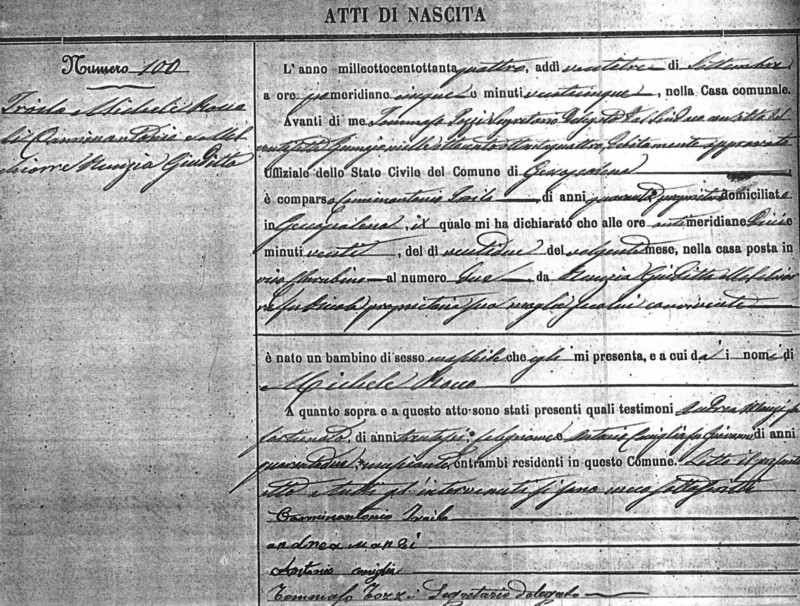 ATTI DI NASCITA
Numero 100
Troilo Michele Rocco
di Carminantonio e Mel
chiorre Nunzia Giuditta
L'anno milleottocentottantaquattro, addì ventitre di Settembre
a ore pomeridiane cinque e minuti venticinque, nella Casa comunale.
Avanti di me Tommaso Tozzi Segretario delegato dal Sindaco con atto del
giugno milleottocentottantaquattro, debitamente approvato
Uffiziale dello Stato Civile del Comune di Gessopalena
è comparso Carminantonio Troilo, di anni quaranta proprietario domiciliato
in Gessopalena, il quale mi ha dichiarato che alle ore antimeridiane dieci
minuti venti, del dì ventidue del volgente mese, nella casa posta in
via al numero due da Nunzia Giuditta Melchior
re fu Nicola proprietaria sua moglie seco lui convivente
è nato un bambino di sesso maschile che egli mi presenta, e a cui dà i nomi di
Michele Rocco
A quanto sopra e a questo atto sono stati presenti quali testimoni Andrea Manzi fu
Fortunato, di anni trentasei falegname e Antonio Coniglio fu Giovanni di anni
quarantadue, entrambi residenti in questo Comune. Letto il presente
atto a tutti gl'intervenuti si sono meco sottoscritti
Carminantonio Troilo
andrea manzi
Antonio coniglio
Tommaso Tozzi Segretario delegato